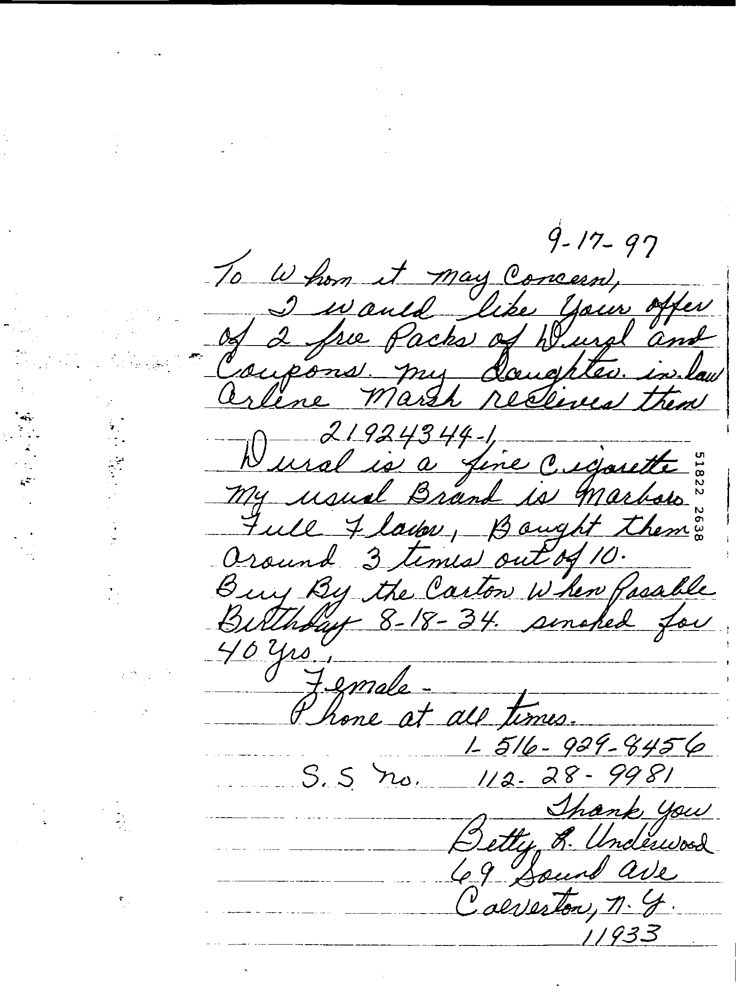 9-17-97
To Whom it may Concern,
I would like your offer
of 2 free Packs of Dural and
Coupons. My daughter. in. law
Arlene Marsh recieves them
21924344-1,
Dural is a fine Cigarette
My usual Brand is Marboro
Full Flavor, Bought them
around 3 times out of 10.
Buy By the Carton When Posable
Birthday 8-18-34. smoked for
40 yrs.,
Female -
Phone at all times.
1-516-929-8456
S.S no. 112-28-9981
Thank you
Betty R. Underwood
69 Sound Ave
Calverton, N.Y.
11933
51822 2638